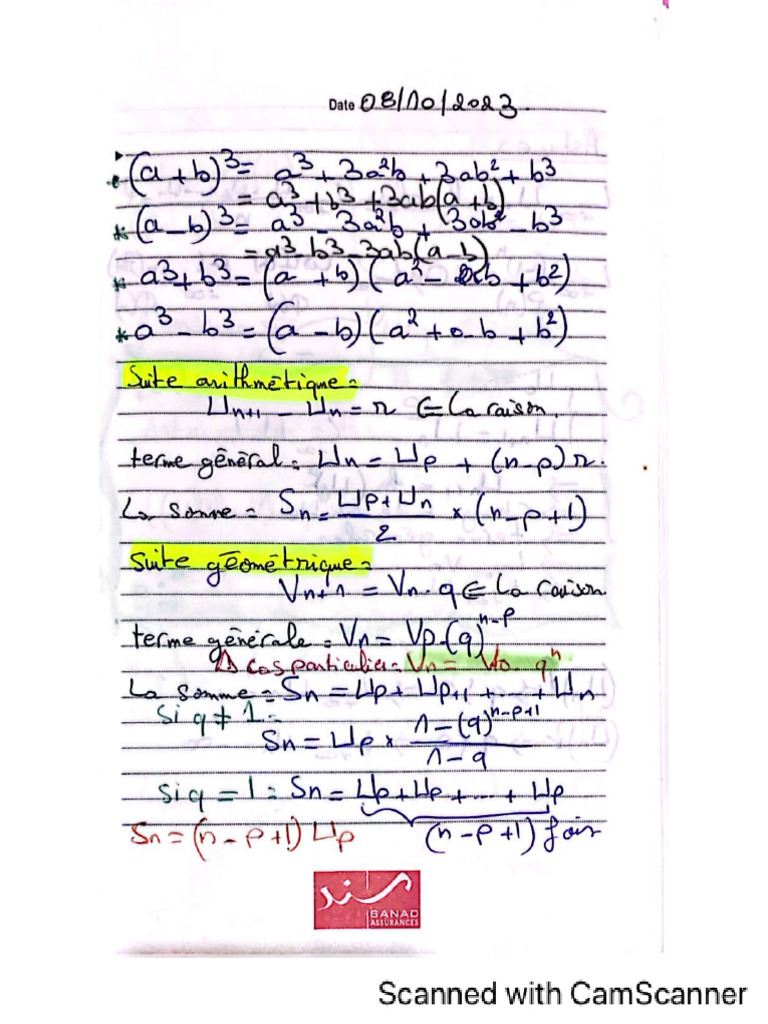 Date 08/10/2023
• (a+b)³ = a³ + 3a²b + 3ab² + b³
= a³ + b³ + 3ab(a+b)
* (a-b)³ = a³ - 3a²b + 3ab² - b³
= a³ - b³ - 3ab(a-b)
* a³+b³ = (a+b)(a² - ab + b²)
* a³-b³ = (a-b)(a² + a.b + b²)
Suite arithmétique:
Un+1 - Un = r ∈ La raison.
terme général: Un = Up + (n-p)r.
La somme = Sn = (Up+Un)/2 × (n-p+1)
Suite géométrique:
Vn+1 = Vn . q ∈ La raison
terme générale: Vn = Vp.(q)ⁿ⁻ᵖ
⚠ cas particulier: Vn = V0 . qⁿ
La somme = Sn = Up + Up+1 + ... + Un
Si q ≠ 1:
Sn = Up × (1-(q)ⁿ⁻ᵖ⁺¹)/(1-q)
Si q = 1: Sn = Up + Up + ... + Up
Sn = (n-p+1) Up (n-p+1) fois
سند
SANAD
ASSURANCES
Scanned with CamScanner